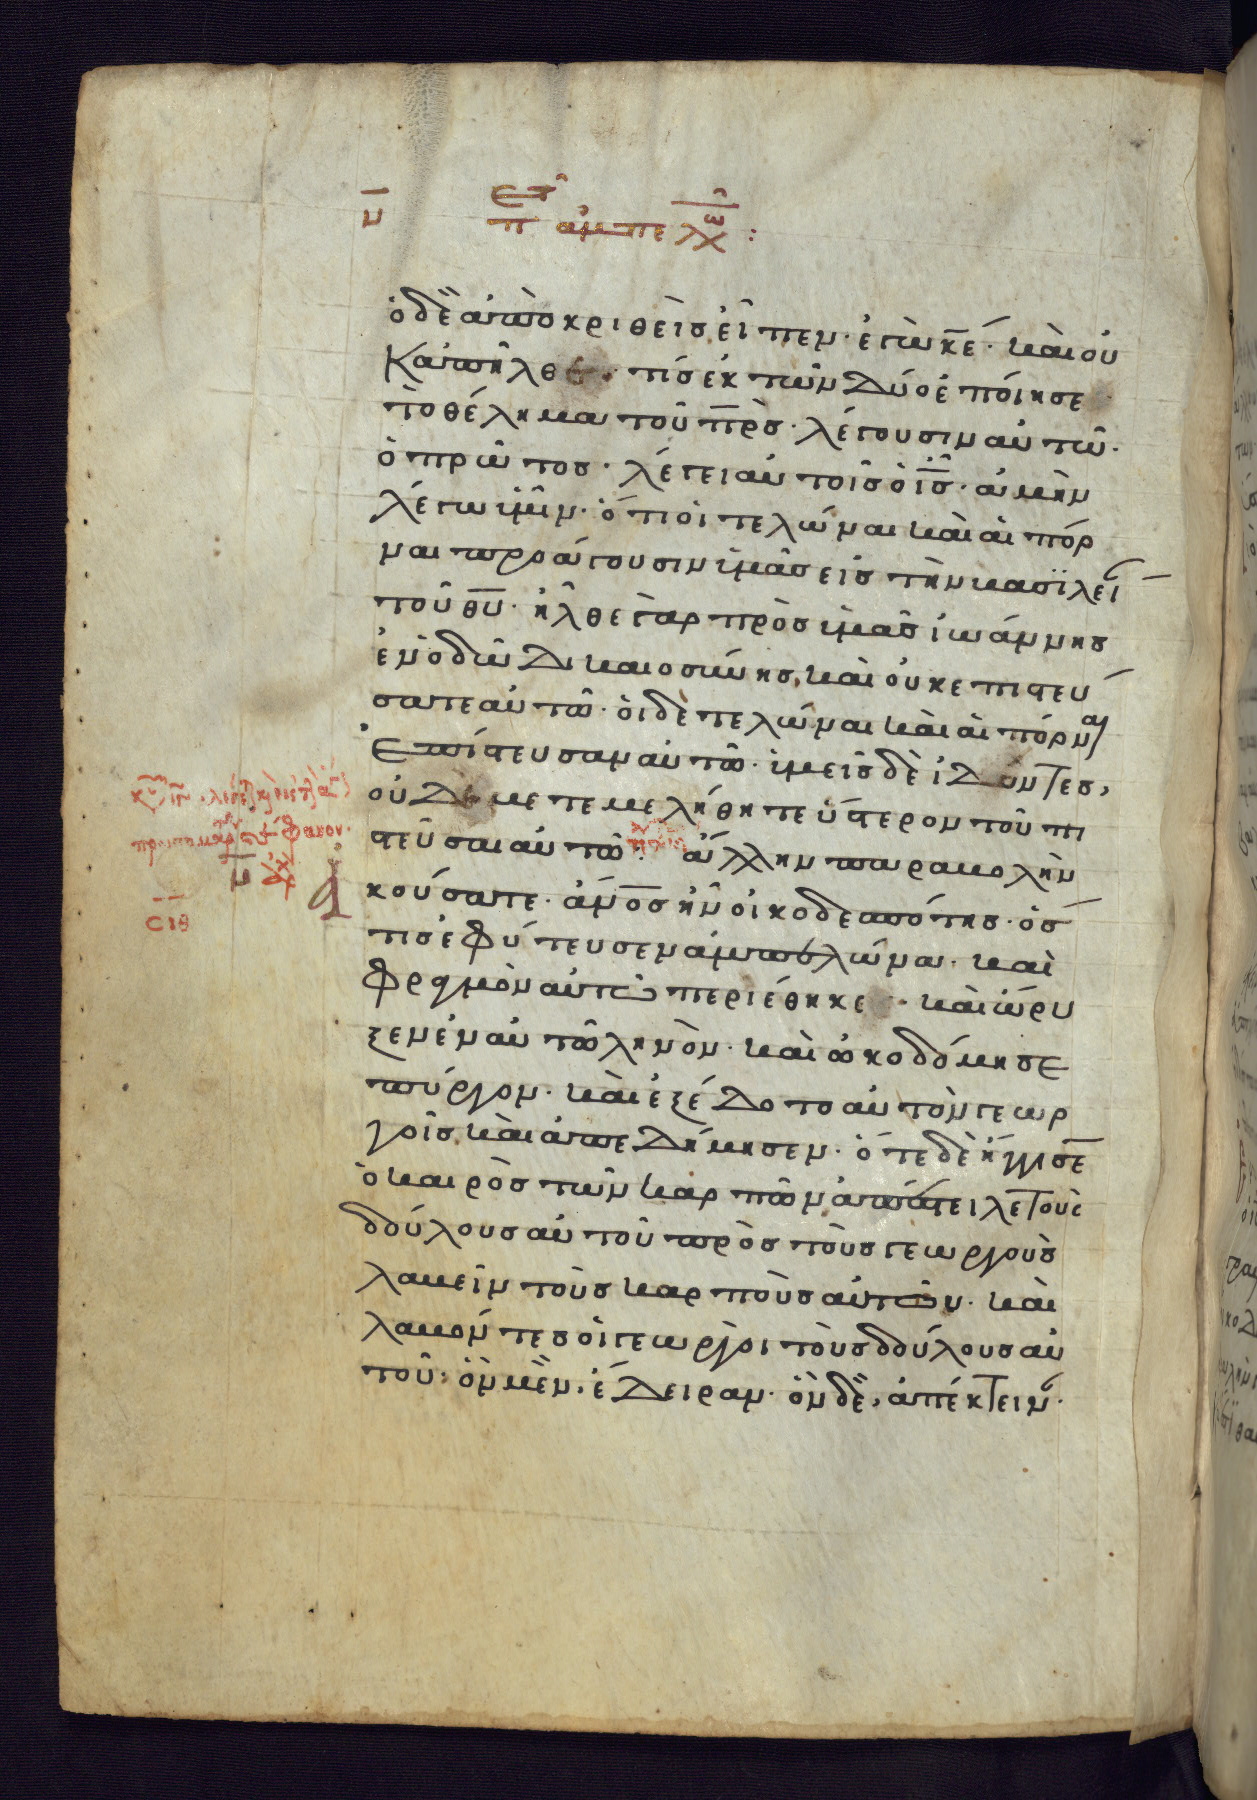 ὁ δὲ ἀποκριθεὶς εἶπεν· ἐγὼ κ̅ε̅· καὶ οὐ
κ ἀπῆλθε· τίς ἐκ τῶν δύο ἐποίησε
τὸ θέλημα τοῦ π̅ρ̅ς̅· λέγουσιν αὐτῶ·
ὁ πρῶτος· λέγει αὐτοῖς ὁ ι̅ς̅· ἀμὴν
λέγω ὑμῖν· ὅτι οἱ τελῶναι καὶ αἱ πόρ
ναι προάγουσιν ὑμᾶς εἰς τὴν βασιλεί
τοῦ θ̅υ̅· ἦλθε γὰρ πρὸς ὑμᾶς ἰωάννης
ἐν ὁδῶ δικαιοσύνης, καὶ οὐκ επιστευ
σατε αὐτῶ· οἱ δὲ τελῶναι καὶ αἱ πόρναι
ἐπίστευσαν αὐτῶ· ὑμεῖς δὲ ἰδόντες,
οὐδὲ μετεμελήθητε ὕστερον τοῦ πι
στεῦσαι αὐτῶ: ἄλλην παραβολὴν
ἀκούσατε· ἄν̅ο̅ς̅ ἦν οἰκοδεσπότης· ὅσ
τις ἐφύτευσεν ἀμπελῶνα· καὶ
φραγμὸν αὐτῶ περιέθηκε· καὶ ὤρυ
ξεν ἐν αὐτῶ ληνὸν· καὶ ὠκοδόμησε
πύργον· καὶ ἐξέδοτο αὐτὸν γεωρ
γοῖς, καὶ ἀπεδήμησεν· ὅτε δὲ ἤγγισε
ὁ καιρὸς τῶν καρπῶν ἀπέστειλε τοὺς
δούλους αὐτοῦ πρὸς τοὺς γεωργοὺς
λαβεῖν τοὺς καρποὺς αὐτοῦ· καὶ
λαβόντες οἱ γεωργοὶ τοὺς δούλους αὐ
τοῦ· ὃν μὲν, ἔδειραν· ὃν δὲ, ἀπέκτειν·